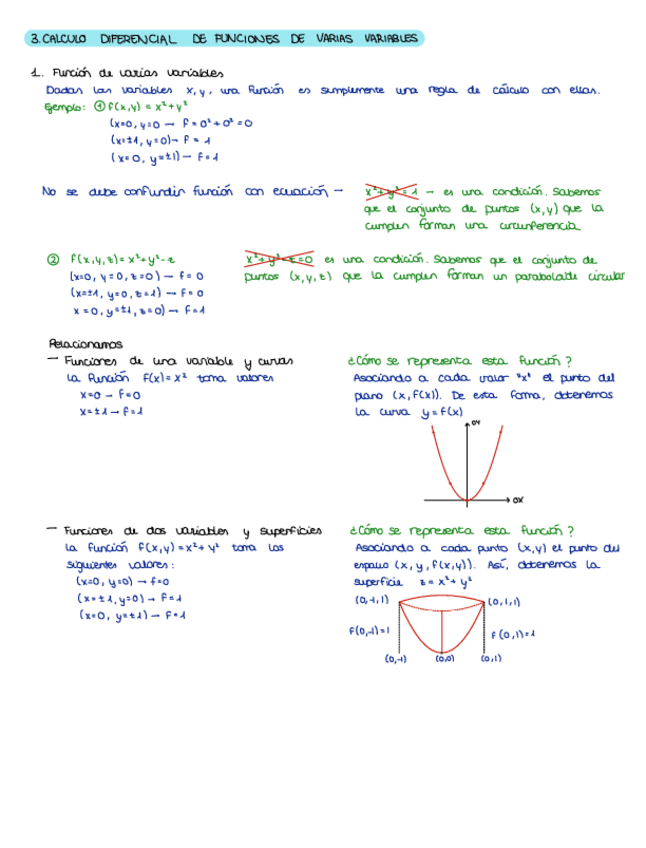 3. CALCULO DIFERENCIAL DE FUNCIONES DE VARIAS VARIABLES
1. Función de varias variables
Dadas las variables x, y, una función es simplemente una regla de cálculo con ellas.
Ejemplo: ① f(x,y) = x²+y²
(x=0, y=0 → f = 0² + 0² = 0
(x=±1, y=0) → f = 1
(x=0, y=±1) → f=1
No se debe confundir función con ecuación → x²+y²=1 → es una condición. Sabemos
que el conjunto de puntos (x,y) que la
cumplen forman una circunferencia
② f(x,y,z)=x²+y²-z
x²+y²-z=0 es una condición. Sabemos que el conjunto de
puntos (x,y,z) que la cumplen forman un paraboloide circular
(x=0, y=0, z=0) → f=0
(x=±1, y=0, z=1) → f=0
x=0, y=±1, z=0) → f=1
Relacionamos
— Funciones de una variable y curvas
La función f(x)=x² toma valores
x=0 → f=0
x=±1 → f=1
¿Cómo se representa esta función?
Asociando a cada valor "x" el punto del
plano (x, f(x)). De esta forma, obtenemos
la curva y=f(x)
OY
OX
— Funciones de dos variables y superficies
La función f(x,y)=x²+y² toma los
siguientes valores:
(x=0, y=0) → f=0
(x=±1, y=0) → f=1
(x=0, y=±1) → f=1
¿Cómo se representa esta función?
Asociando a cada punto (x,y) el punto del
espacio (x, y, f(x,y)). Así, obtenemos la
superficie z=x²+y²
(0,-1,1)
(0,1,1)
f(0,-1)=1
f(0,1)=1
(0,-1)
(0,0)
(0,1)